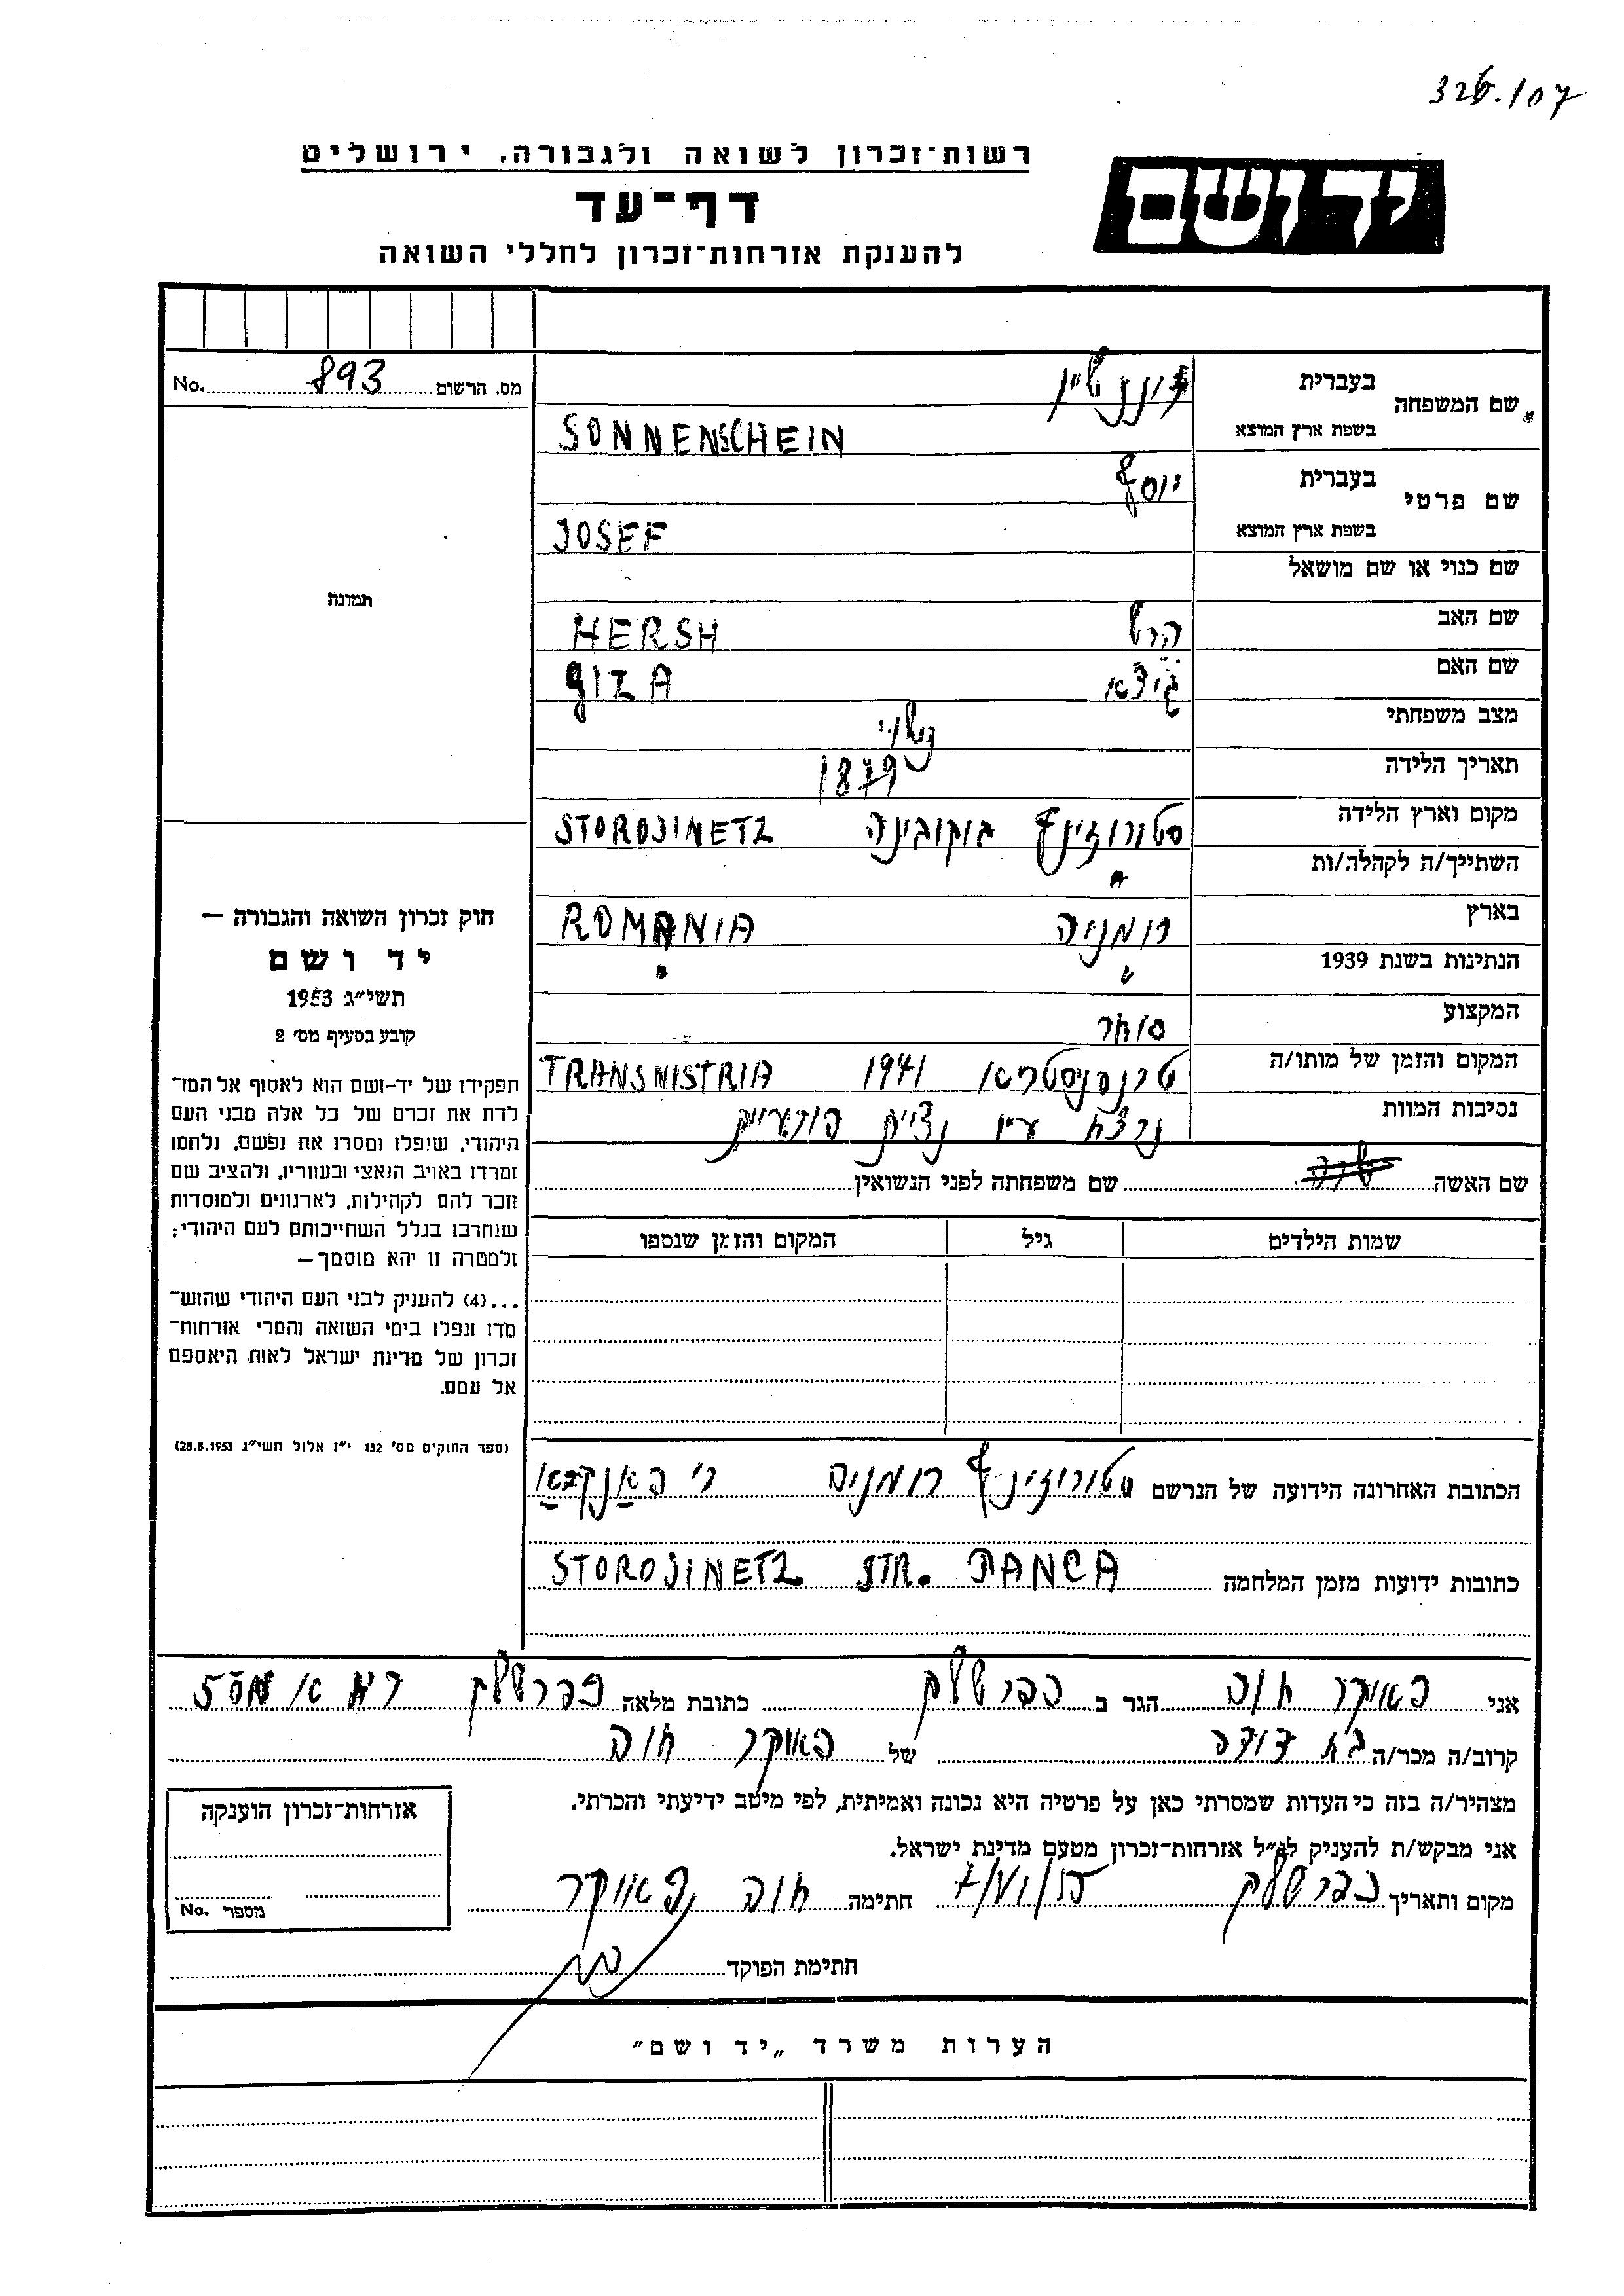 326.107
יד ושם
רשות־זכרון לשואה ולגבורה, ירושלים
דף־עד
להענקת אזרחות־זכרון לחללי השואה
מס. הרשום 893 No.
שם המשפחה
בעברית
בשפת ארץ המוצא SONNENSCHEIN
שם פרטי
בעברית יוסף
בשפת ארץ המוצא JOSEF
שם כנוי או שם מושאל
שם האב הרש HERSH
שם האם גיזא GIZA
מצב משפחתי נשוי
תאריך הלידה 1879
מקום וארץ הלידה סטורוזינץ בוקובינה STOROJINETZ
השתייך/ה לקהלה/ות "
בארץ רומניה ROMANIA
הנתינות בשנת 1939 " "
המקצוע סוחר
המקום והזמן של מותו/ה טרנסניסטריא 1941 TRANSNISTRIA
נסיבות המוות נרצח ע״י נצים
שם האשה שם משפחתה לפני הנשואין
שמות הילדים גיל המקום והזמן שנספו
תמונה
חוק זכרון השואה והגבורה —
יד ושם
תשי״ג 1953
קובע בסעיף מס׳ 2
תפקידו של יד־ושם הוא לאסוף אל המו־
לדת את זכרם של כל אלה מבני העם
היהודי, שנפלו ומסרו את נפשם, נלחמו
ומרדו באויב הנאצי ובעוזריו, ולהציב שם
וזכר להם לקהילות, לארגונים ולמוסדות
שנחרבו בגלל השתייכותם לעם היהודי;
ולמטרה זו יהא מוסמך —
...(4) להעניק לבני העם היהודי שהוש־
מדו ונפלו בימי השואה והמרי אזרחות־
זכרון של מדינת ישראל לאות היאספם
אל עמם.
(ספר החוקים מס׳ 132 י״ז אלול תשי״ג 28.8.1953)
הכתובת האחרונה הידועה של הנרשם סטורוזינץ רומניה
כתובות ידועות מזמן המלחמה STOROJINETZ STR. PANCA
אני פאוקר חוה הגר ב כתובת מלאה
קרוב/ה מכר/ה בת דודה של פאוקר חוה
מצהיר/ה בזה כי העדות שמסרתי כאן על פרטיה היא נכונה ואמיתית, לפי מיטב ידיעתי והכרתי.
אני מבקש/ת להעניק לנ״ל אזרחות־זכרון מטעם מדינת ישראל.
מקום ותאריך חתימה חוה פאוקר
חתימת הפוקד
אזרחות־זכרון הוענקה
מספר No.
הערות משרד „יד ושם"